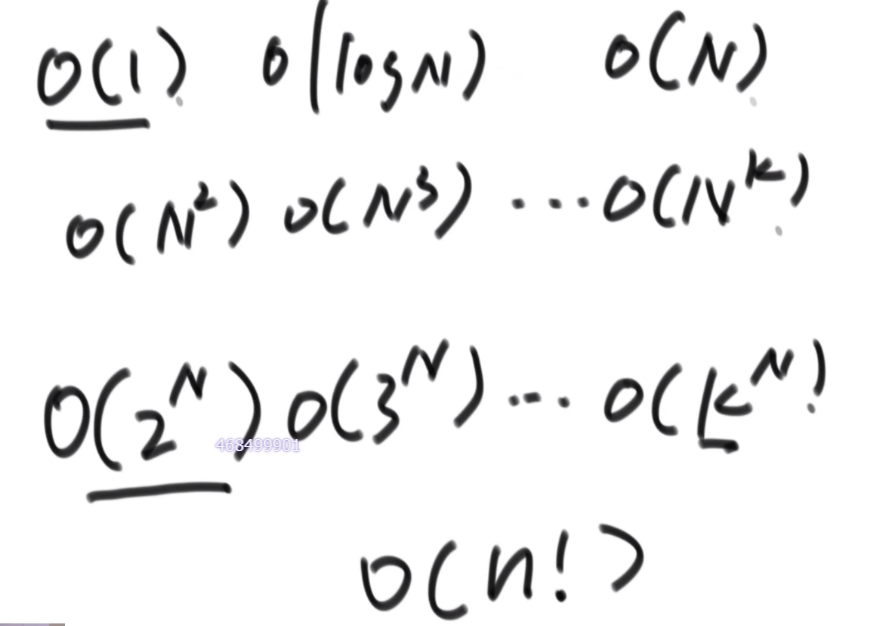 O(1) O(logN) O(N)
O(N²) O(N³) ... O(Nᵏ)
O(2ᴺ) O(3ᴺ) ... O(kᴺ)
463499901
O(n!)